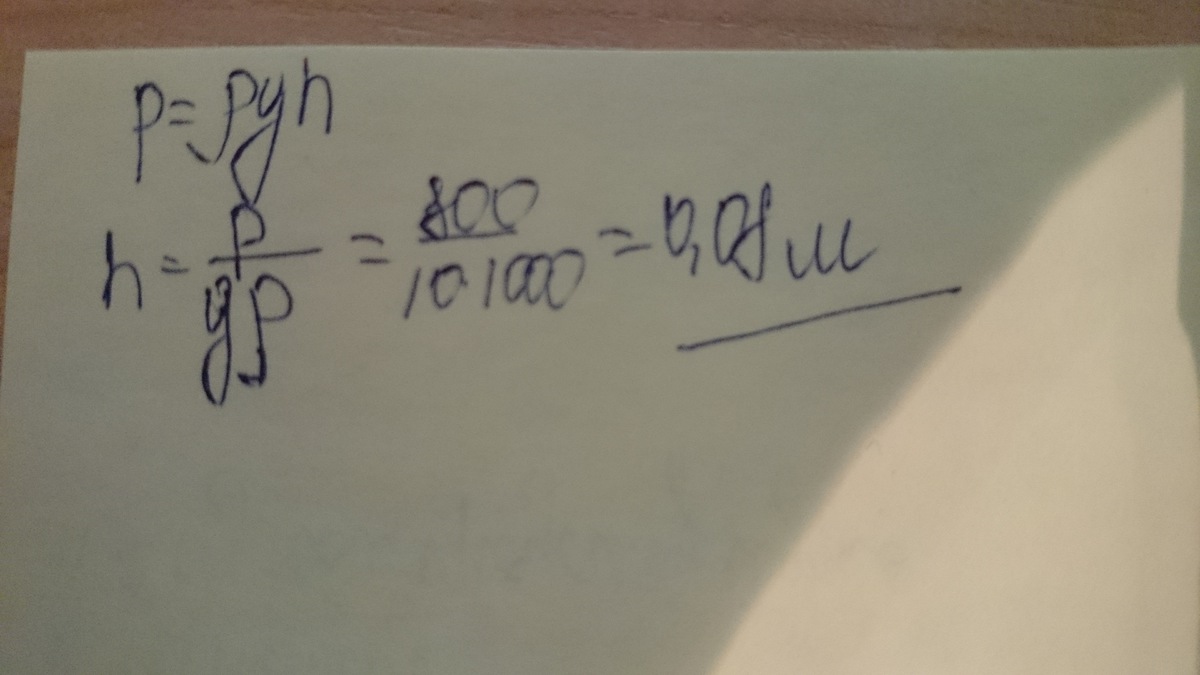 p=ρgh
h = p/gρ = 800/10·1000 = 0,08 м